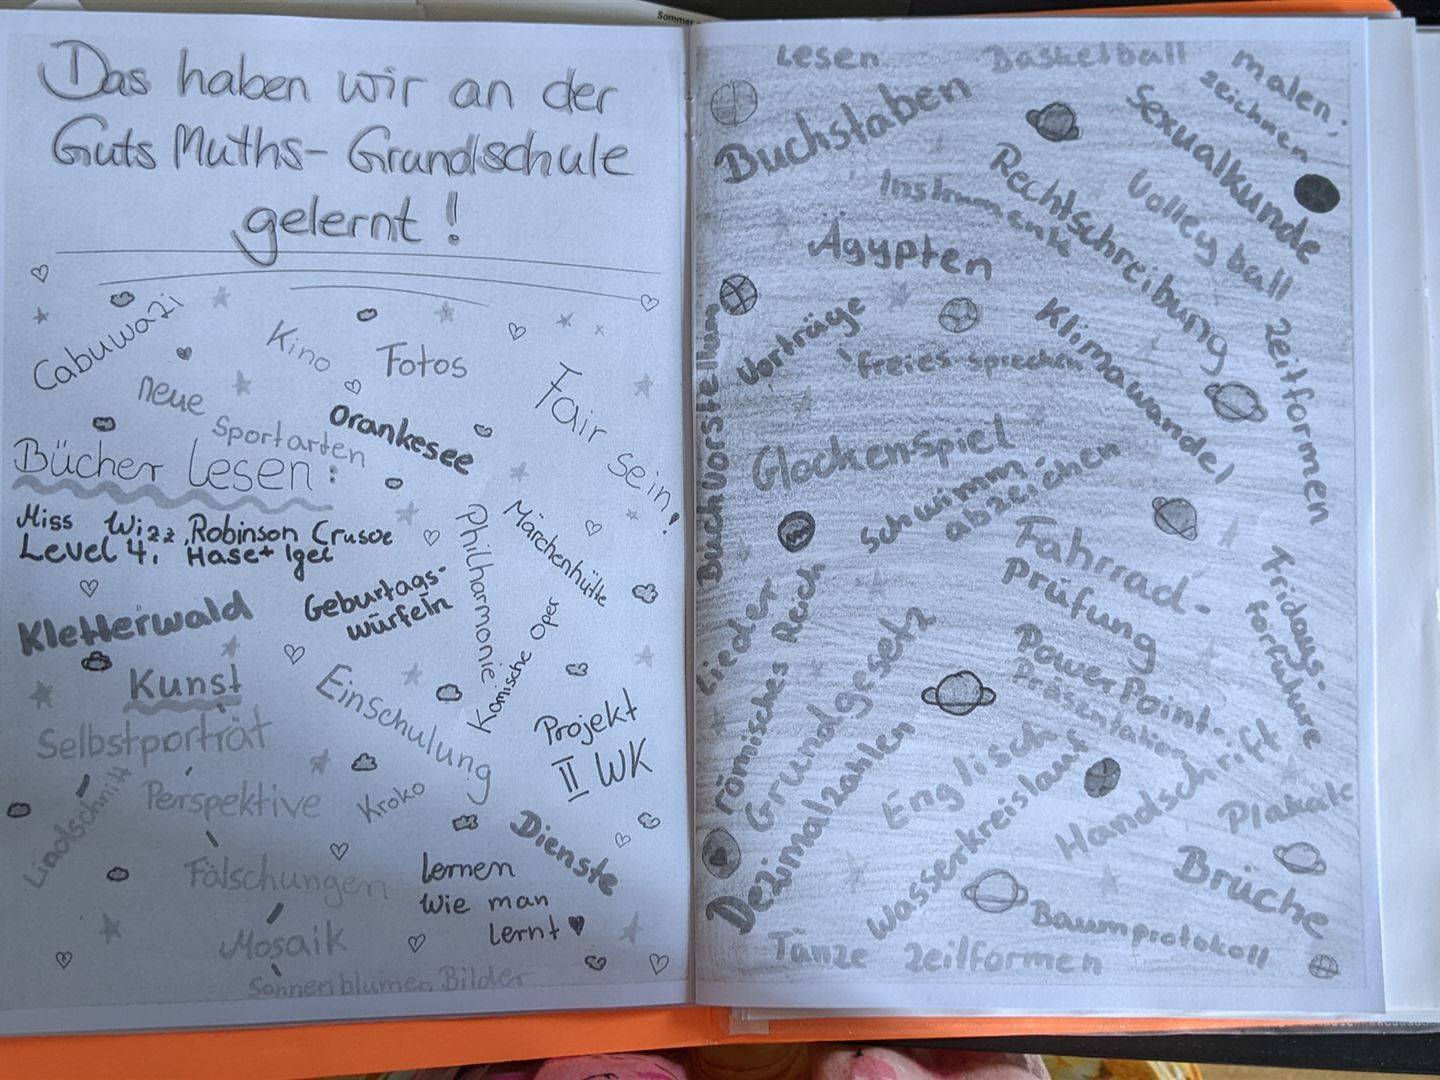 Sommer
Das haben wir an der
Guts Muths- Grundschule
gelernt!
Cabuwazi
Kino
Fotos
Fair
sein!
neue
Sportarten
Orankesee
Bücher lesen:
Miss Wizz, Robinson Crusoe
Level 4, Hase+Igel
Philharmonie
Märchenhütte
Geburtags-
würfeln
Komische Oper
Kletterwald
Kunst
Einschulung
Projekt
II WK
Selbstporträt
Perspektive
Kroko
Dienste
Fälschungen
lernen
wie man
lernt
Mosaik
Sonnenblumen Bilder
Lesen
Basketball
malen,
zeichnen
Buchstaben
Sexualkunde
Instrumente
Rechtschreibung
Volleyball
Ägypten
Vorträge
freies sprechen
Klimawandel
Zeitformen
Buchvorstellung
Glockenspiel
Schwimm-
abzeichen
Fahrrad-
prüfung
Fridays-
forfuture
Lieder
römisches Reich
Grundgesetz
PowerPoint-
Präsentation
Dezimalzahlen
Englisch
Wasserkreislauf
Handschrift
Plakate
Brüche
Baumprotokoll
Tänze
Zeitformen